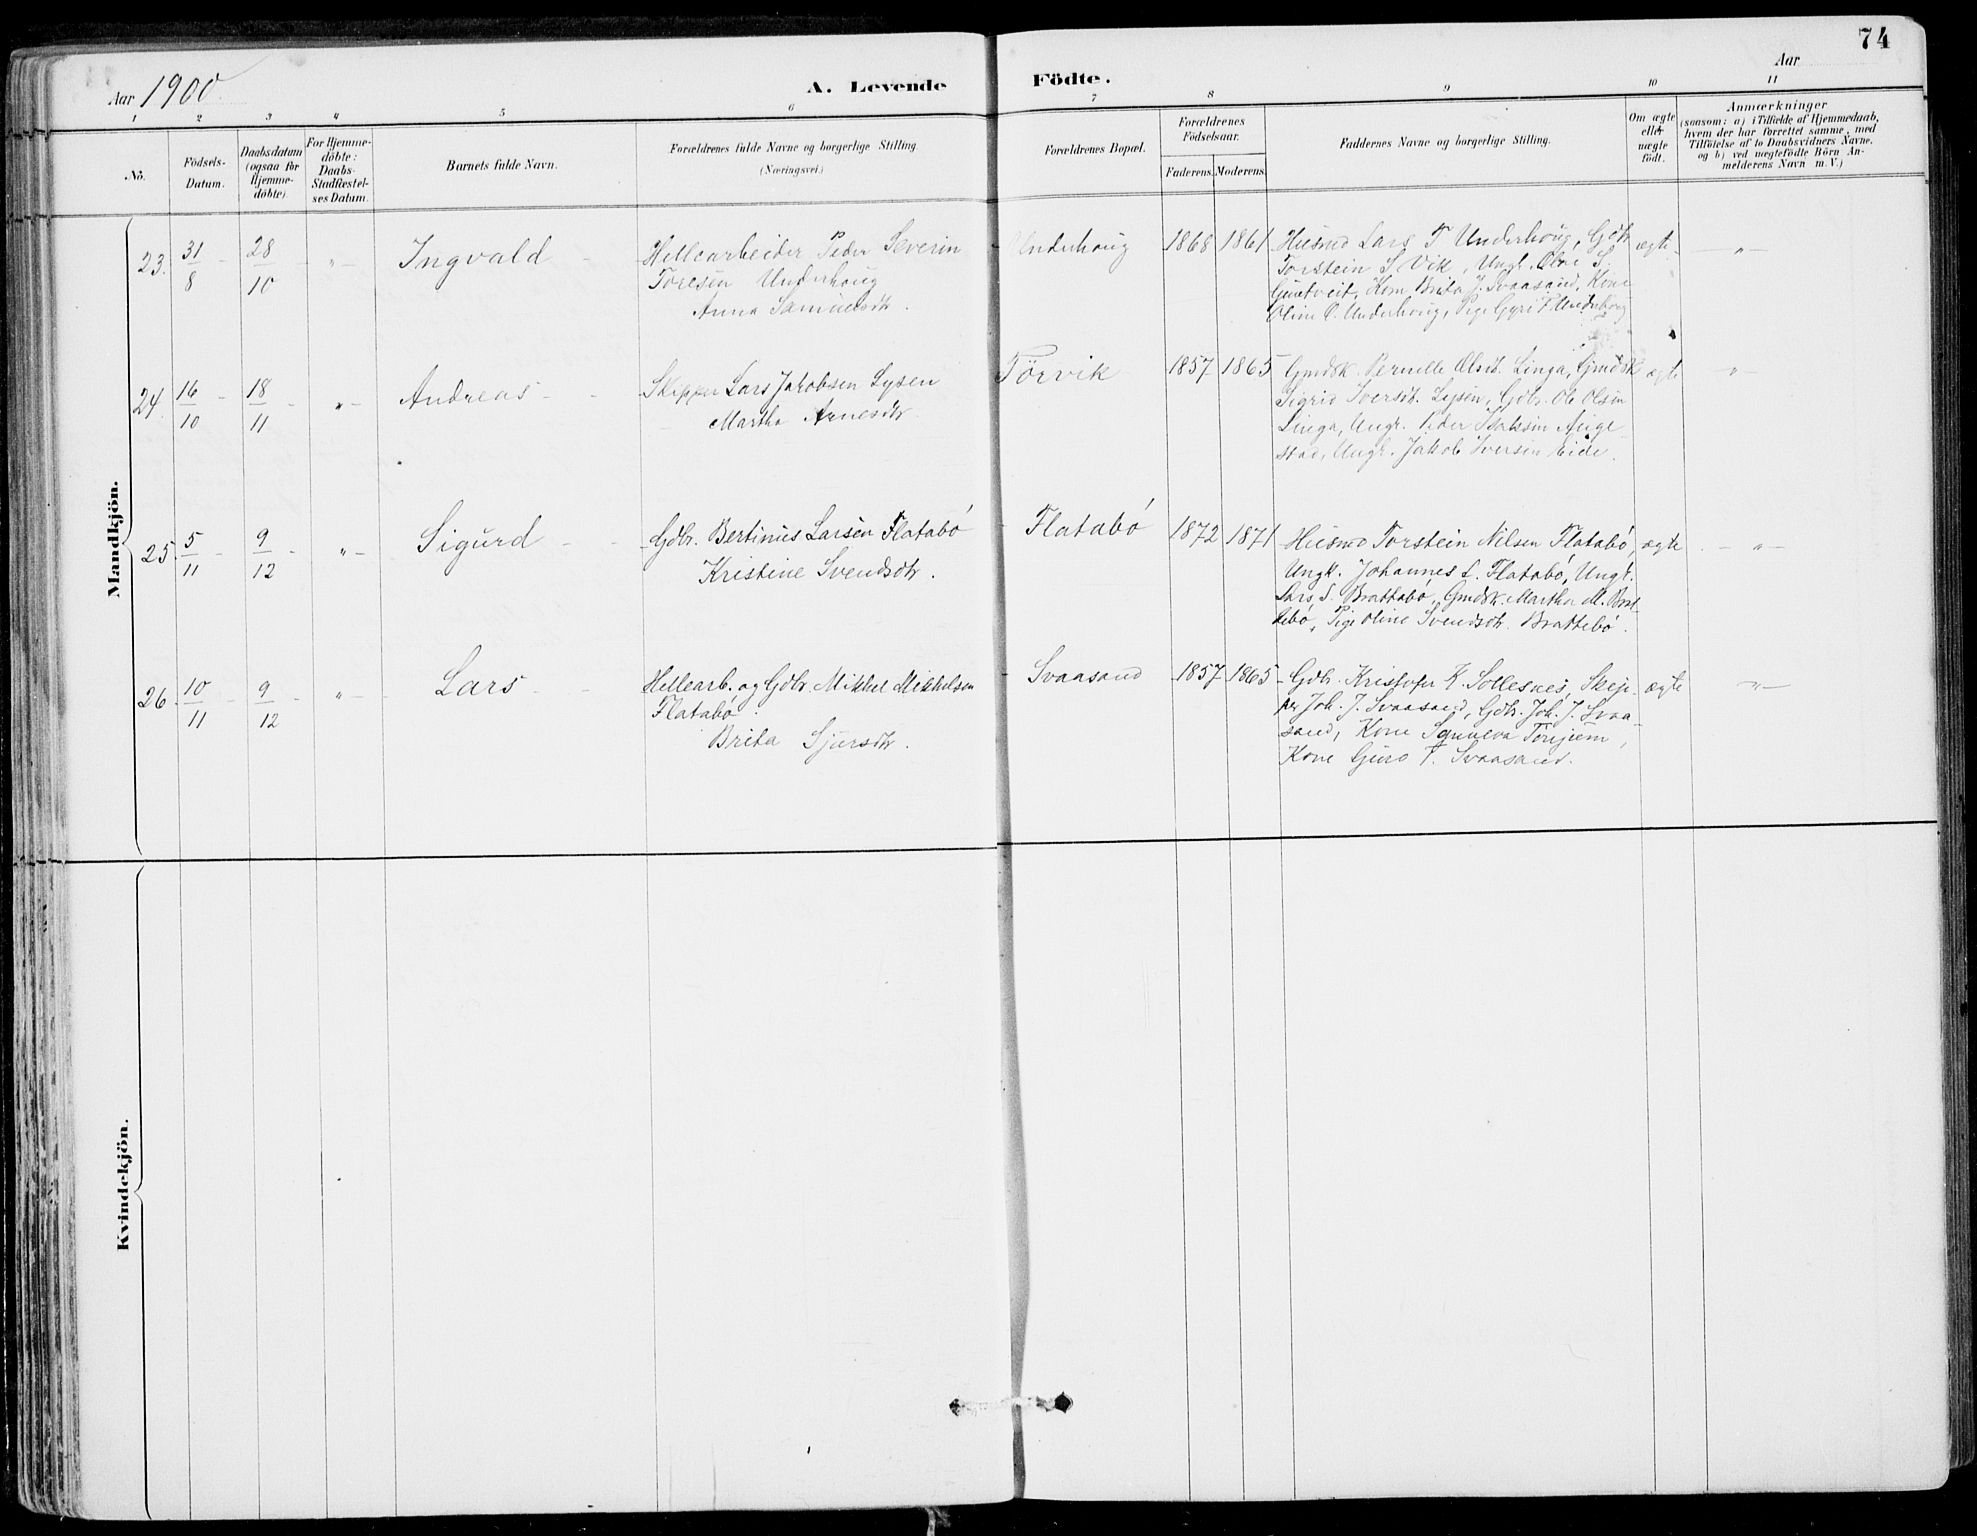 74
Aar 1900
A. Levende Födte.
Aar
1 2 3 4 5 6 7 8 9 10 11
No.
Födsels-
Datum.
Daabsdatum
(ogsaa för
Hjemme-
döbte).
For Hjemme-
döbte:
Daabs-
Stadfæstel-
ses Datum.
Barnets fulde Navn.
Forældrenes fulde Navne og borgerlige Stilling.
(Næringsvei.)
Forældrenes Bopæl.
Forældrenes
Födselsaar.
Faderens. Moderens.
Faddernes Navne og borgerlige Stilling.
Om ægte
eller
uægte
födt.
Anmærkninger
(saasom: a) i Tilfælde af Hjemmedaab,
hvem der har forrettet samme, med
Tilföielse af to Daabsvidners Navne,
og b) ved uægtefödte Börn An-
melderens Navn m. V.)
Mandkjön.
23. 31/8 28/10 „ Ingvald
Hellearbeider Peder Severin
Toresen Underhoug
Anna Samuelsdtr.
Underhoug 1868 1861
Husmd Lars T Underhoug, Gdbr
Torstein S Vik, Ungk. Olne S.
Kone Brita J. Svaasand, Kone
Oline O. Underhoug, Pige Gyri P. Underhoug
ægte „
24. 16/10 18/11 „ Andreas
Skipper Lars Jakobsen Lysen
Martha Arnesdtr
Törvik 1857 1865
Gmdsk. Pernille Olsdt. Linga, Gmdsk
Sigrid Iversdt. Lysen, Gdbr. Ole Olsen
Linga, Ungk. Peder Auge-
stad, Ungk. Jakob Iversen Eide.
ægte „
25. 5/11 9/12 „ Sigurd
Gdbr. Bertinus Larsen Flatabö
Kristine Svendsdtr.
Flatabö 1872 1871
Husmd Torstein Nilsen Flatabö,
Ungk. Johannes L. Flatabö, Ungk.
Lars S. Brattabö, Gmdsk. Martha M. Brat-
tebö, Pige Oline Svendsdtr. Brattebö.
ægte „
26. 10/11 9/12 „ Lars
Hellearb. og Gdbr. Mikkel Mikkelsen
Flatabö
Brita Sjursdtr.
Svaasand 1857 1865
Gdbr. Kristofer K. Sollesnes, Skip-
per Joh. J. Svaasand, Gdbr. Joh. J. Svaa-
sand, Kone
Kone Guro T. Svaasand.
ægte „
Kvindekjön.